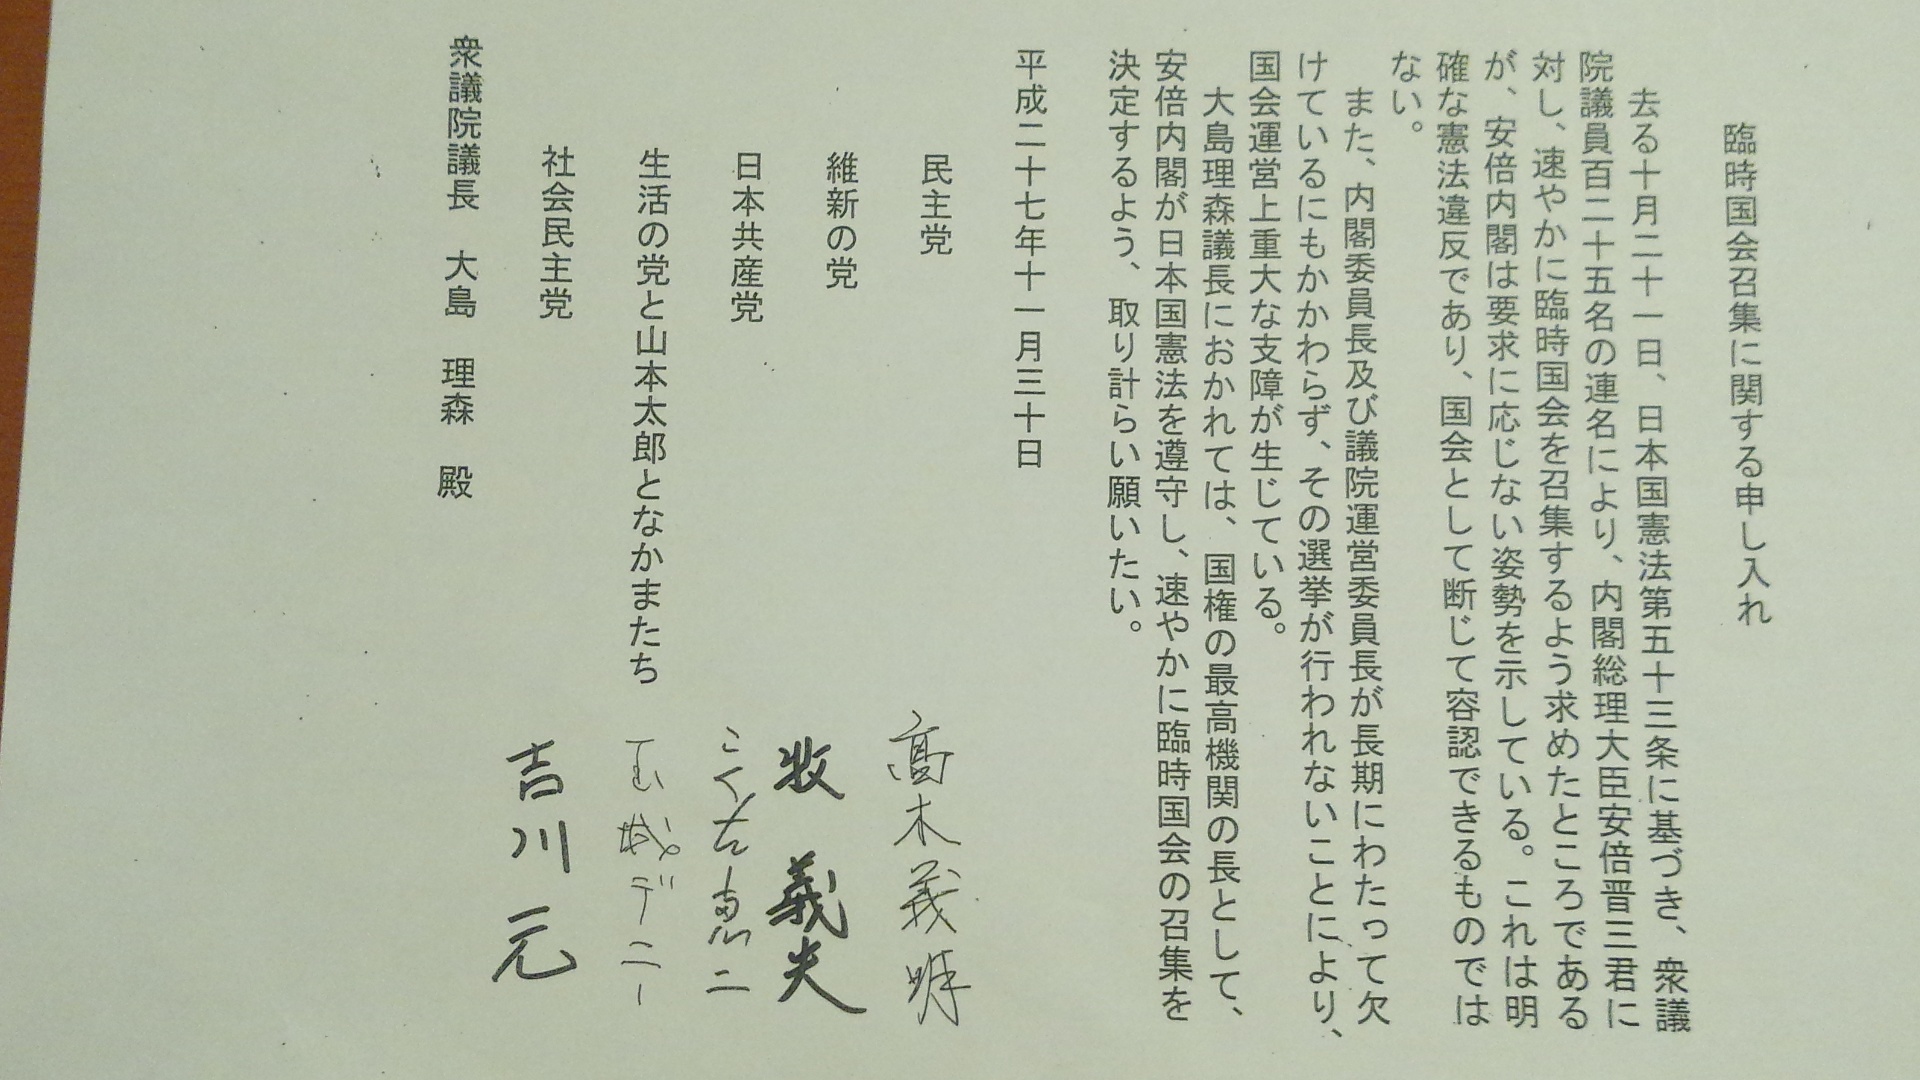 臨時国会召集に関する申し入れ
去る十月二十一日、日本国憲法第五十三条に基づき、衆議
院議員百二十五名の連名により、内閣総理大臣安倍晋三君に
対し、速やかに臨時国会を召集するよう求めたところである
が、安倍内閣は要求に応じない姿勢を示している。これは明
確な憲法違反であり、国会として断じて容認できるものでは
ない。
また、内閣委員長及び議院運営委員長が長期にわたって欠
けているにもかかわらず、その選挙が行われないことにより、
国会運営上重大な支障が生じている。
大島理森議長におかれては、国権の最高機関の長として、
安倍内閣が日本国憲法を遵守し、速やかに臨時国会の召集を
決定するよう、取り計らい願いたい。
平成二十七年十一月三十日
民主党 髙木義明
維新の党 牧 義夫
日本共産党 こくた恵二
生活の党と山本太郎となかまたち 玉城デニー
社会民主党 吉川元
衆議院議長 大島 理森 殿